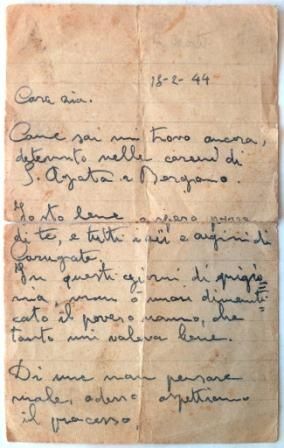 13-2-44
Cara zia.
Come sai mi trovo ancora,
detenuto nelle carceri di
S. Agata a Bergamo.
Io sto bene e spero pure
di te, e tutti i zii e cugini di
Carugate.
In questi giorni di prigio
nia, non o mai dimenti
cato il povero nonno, che
tanto mi voleva bene.
Di me non pensare
male, adesso aspettiamo
il processo,